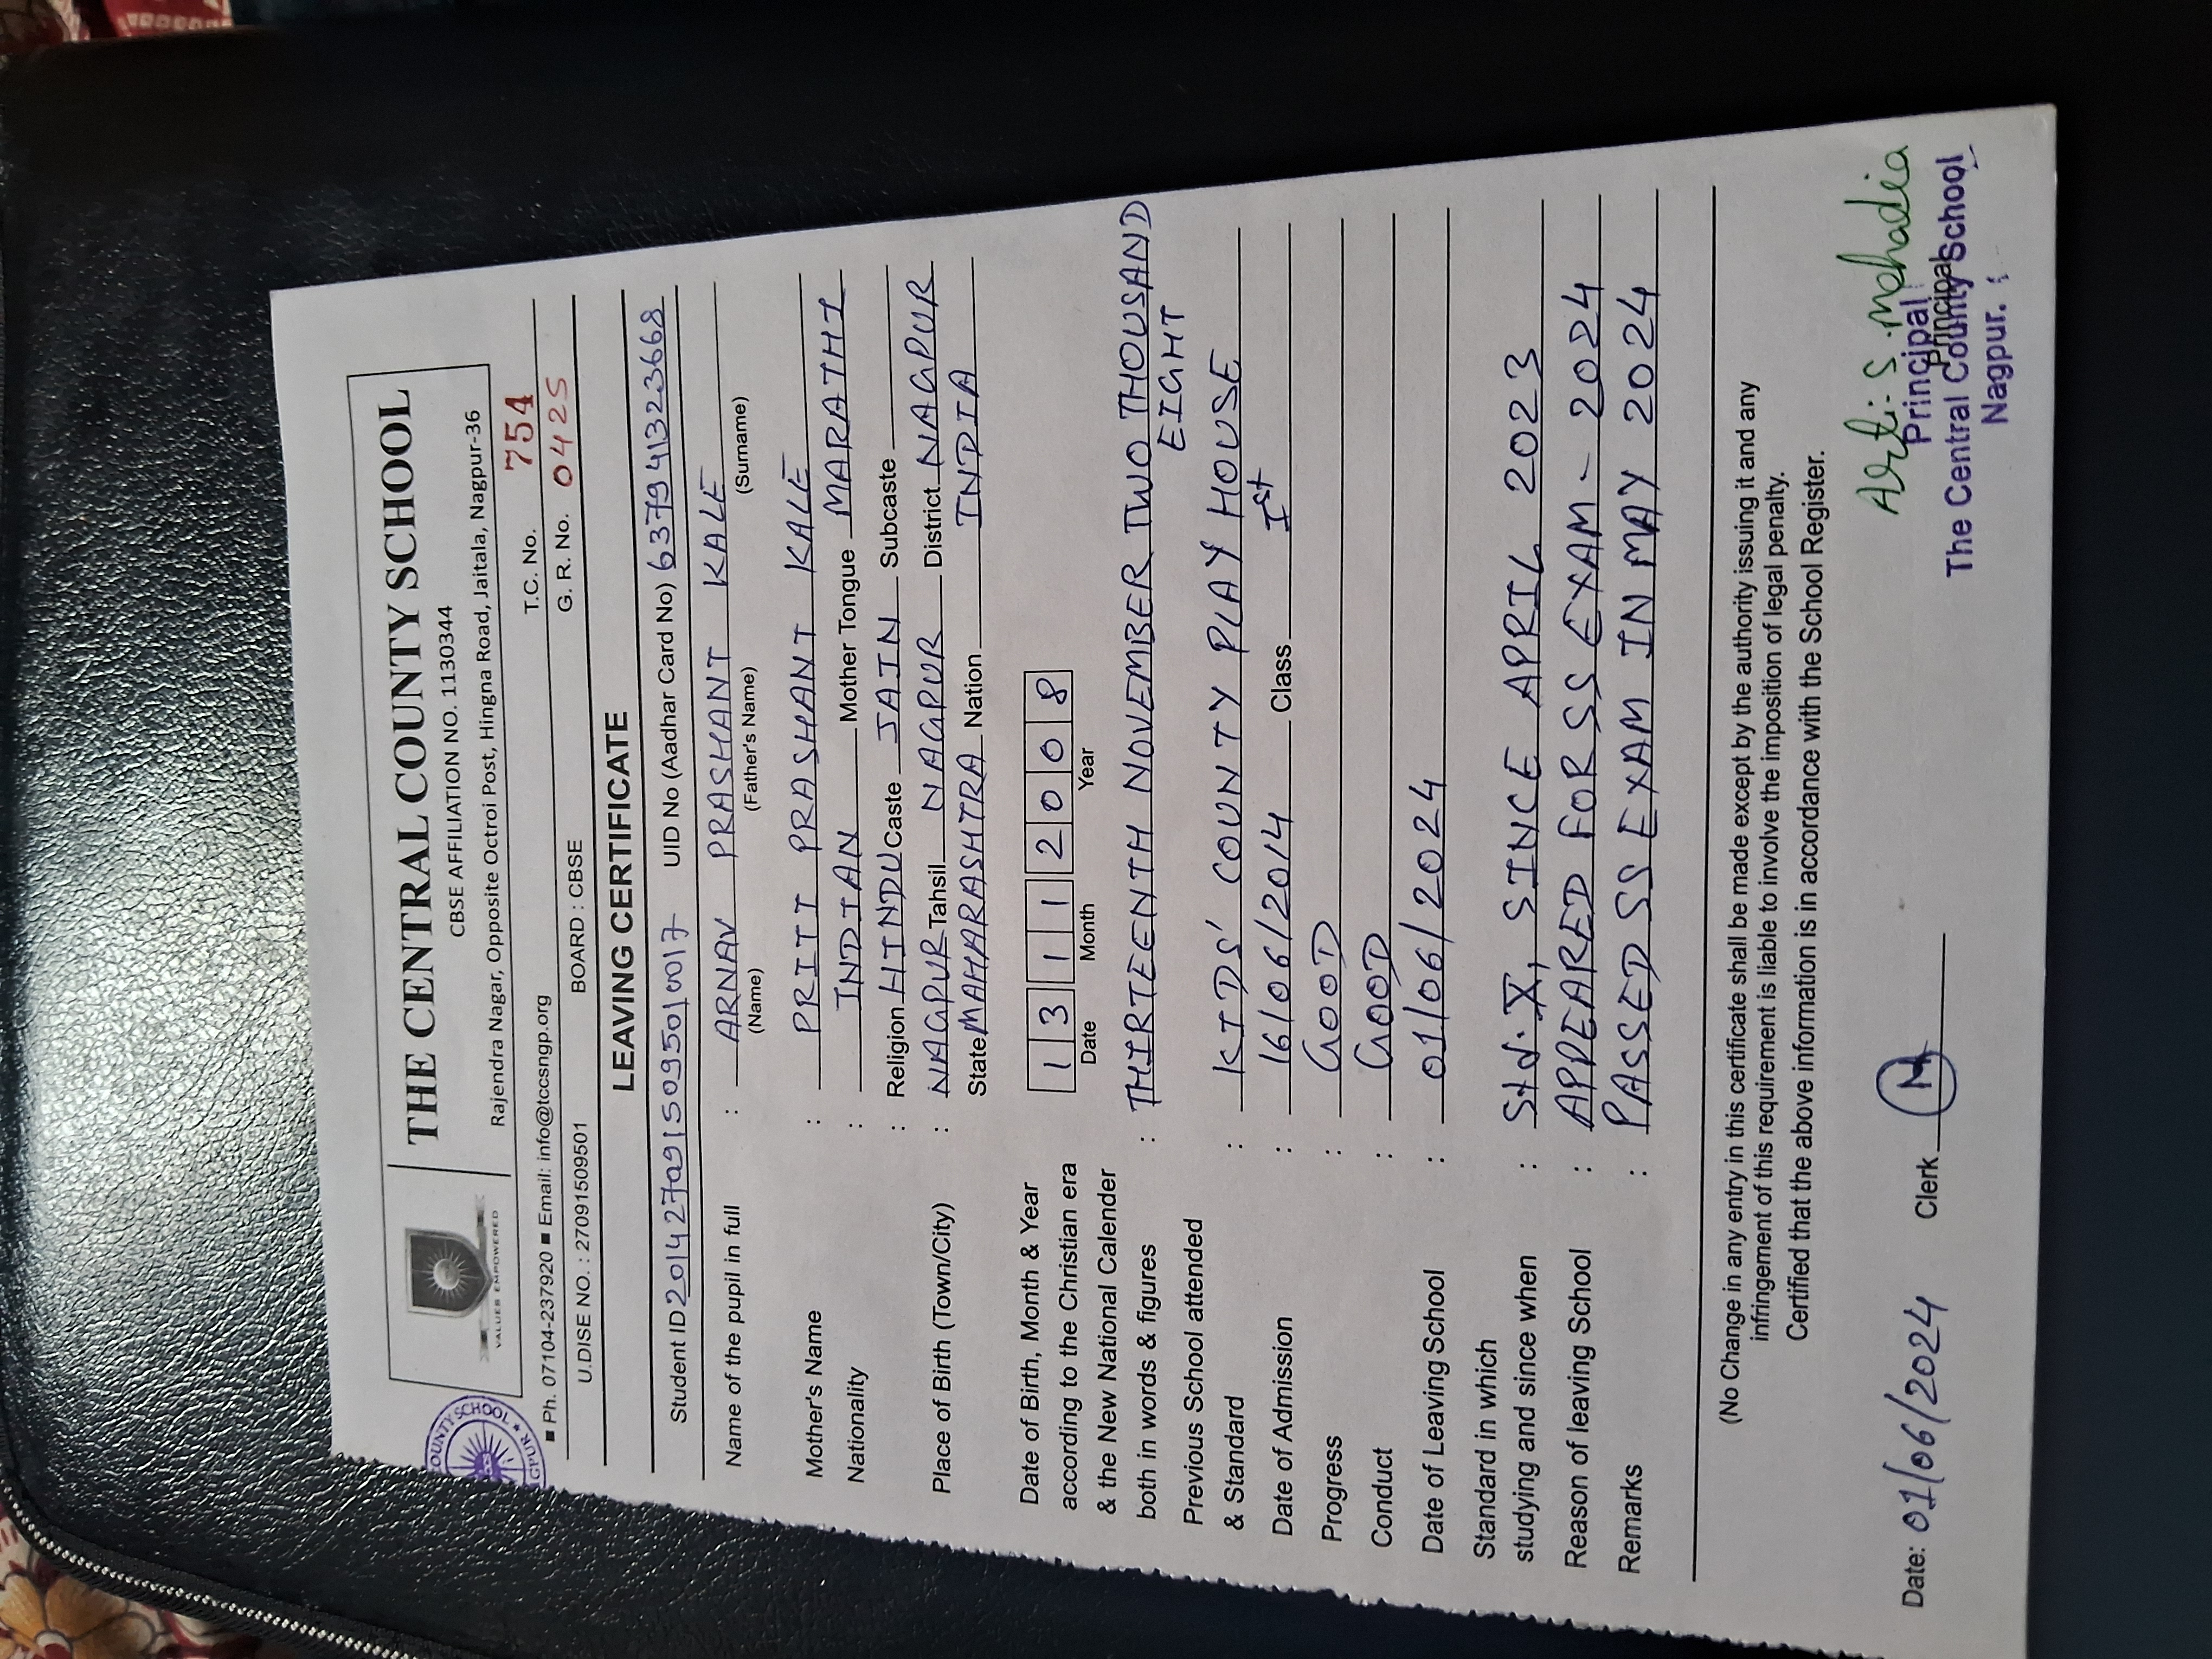 THE CENTRAL COUNTY SCHOOL
CBSE AFFILIATION NO. 11303​44
Rajendra Nagar, Opposite Octroi Post, Hingna Road, Jaitala, Nagpur-36
VALUES EMPOWERED
COUNTY SCHOOL
■ Ph. 07104-237920 ■ Email: info@tccsngp.org T.C. No. 754
BOARD : CBSE G. R. No. 0425
U.DISE NO. : 27091509501
LEAVING CERTIFICATE
Student ID 2014270915095010017 UID No (Aadhar Card No) 637941323668
Name of the pupil in full : ARNAV PRASHANT KALE
(Name) (Father's Name) (Surname)
Mother's Name : PRITI PRASHANT KALE
Nationality : INDIAN Mother Tongue MARATHI
: Religion HINDU Caste JAIN Subcaste
Place of Birth (Town/City) : NAGPUR Tahsil NAGPUR District NAGPUR
State MAHARASHTRA Nation INDIA
Date of Birth, Month & Year 1 3 1 1 2 0 0 8
according to the Christian era Date Month Year
& the New National Calender
both in words & figures : THIRTEENTH NOVEMBER TWO THOUSAND
EIGHT
Previous School attended
& Standard : KIDS' COUNTY PLAY HOUSE
Date of Admission : 16/06/2014 Class Ist
Progress : GOOD
Conduct : GOOD
Date of Leaving School : 01/06/2024
Standard in which
studying and since when : Std. X, SINCE APRIL 2023
Reason of leaving School : APPEARED FOR SS EXAM - 2024
Remarks : PASSED SS EXAM IN MAY 2024
(No Change in any entry in this certificate shall be made except by the authority issuing it and any
infringement of this requirement is liable to involve the imposition of legal penalty.
Certified that the above information is in accordance with the School Register.
Date: 01/06/2024 Clerk
Principal
Principal
The Central County School
Nagpur.